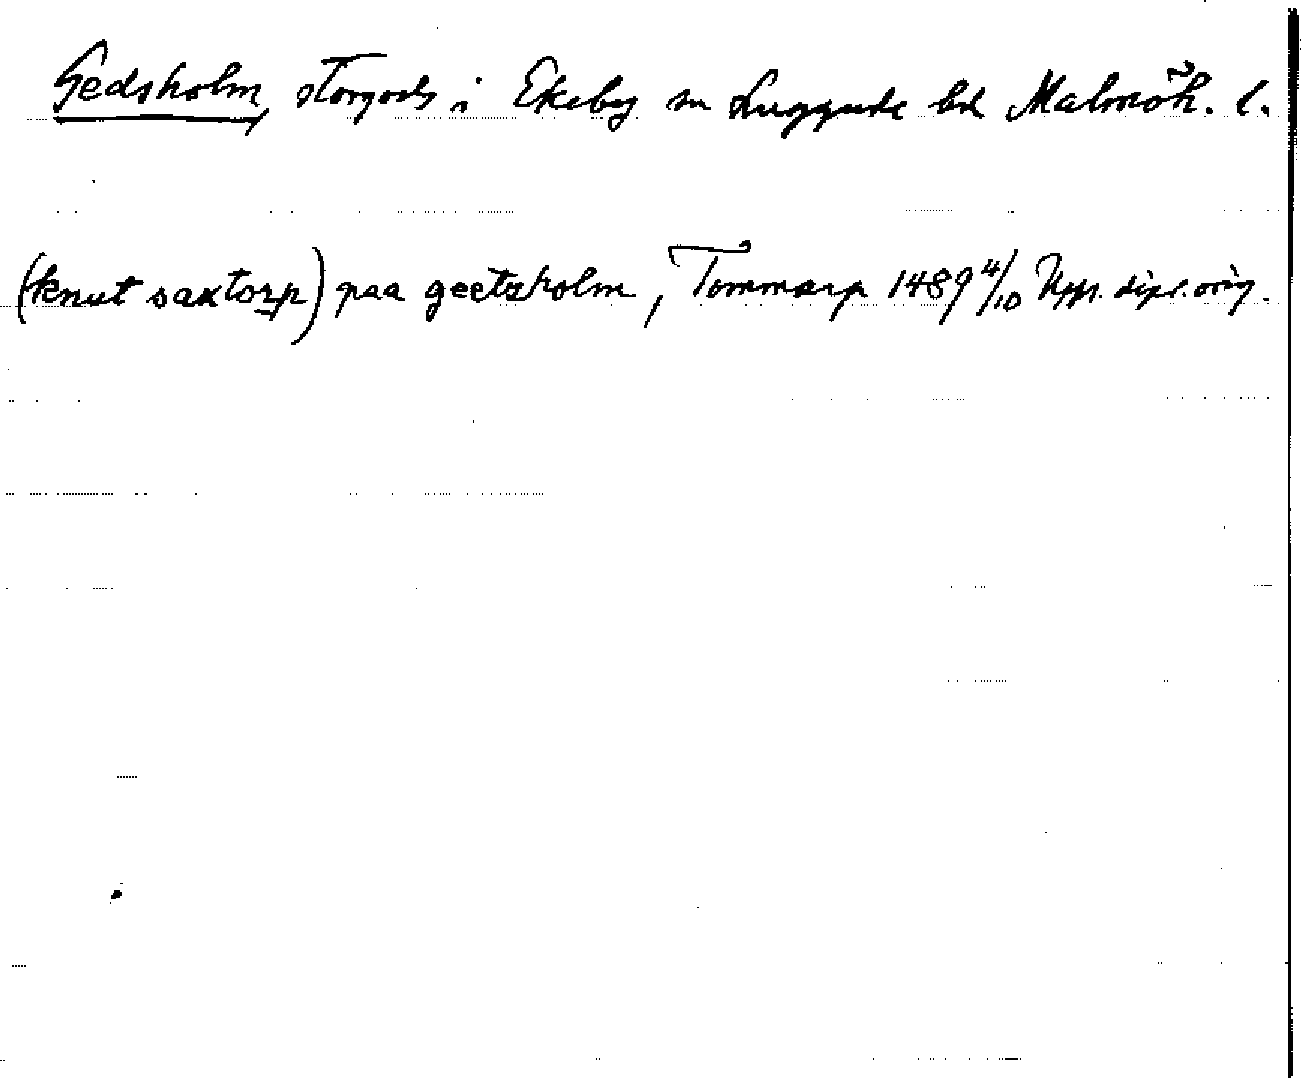 Gedsholm, storgods i Ekeby sn Luggude hd Malmöh. l.
(knut saxtorp) paa geetzholm, Tommarp 1489 4/10 Upps. dipl. orig.